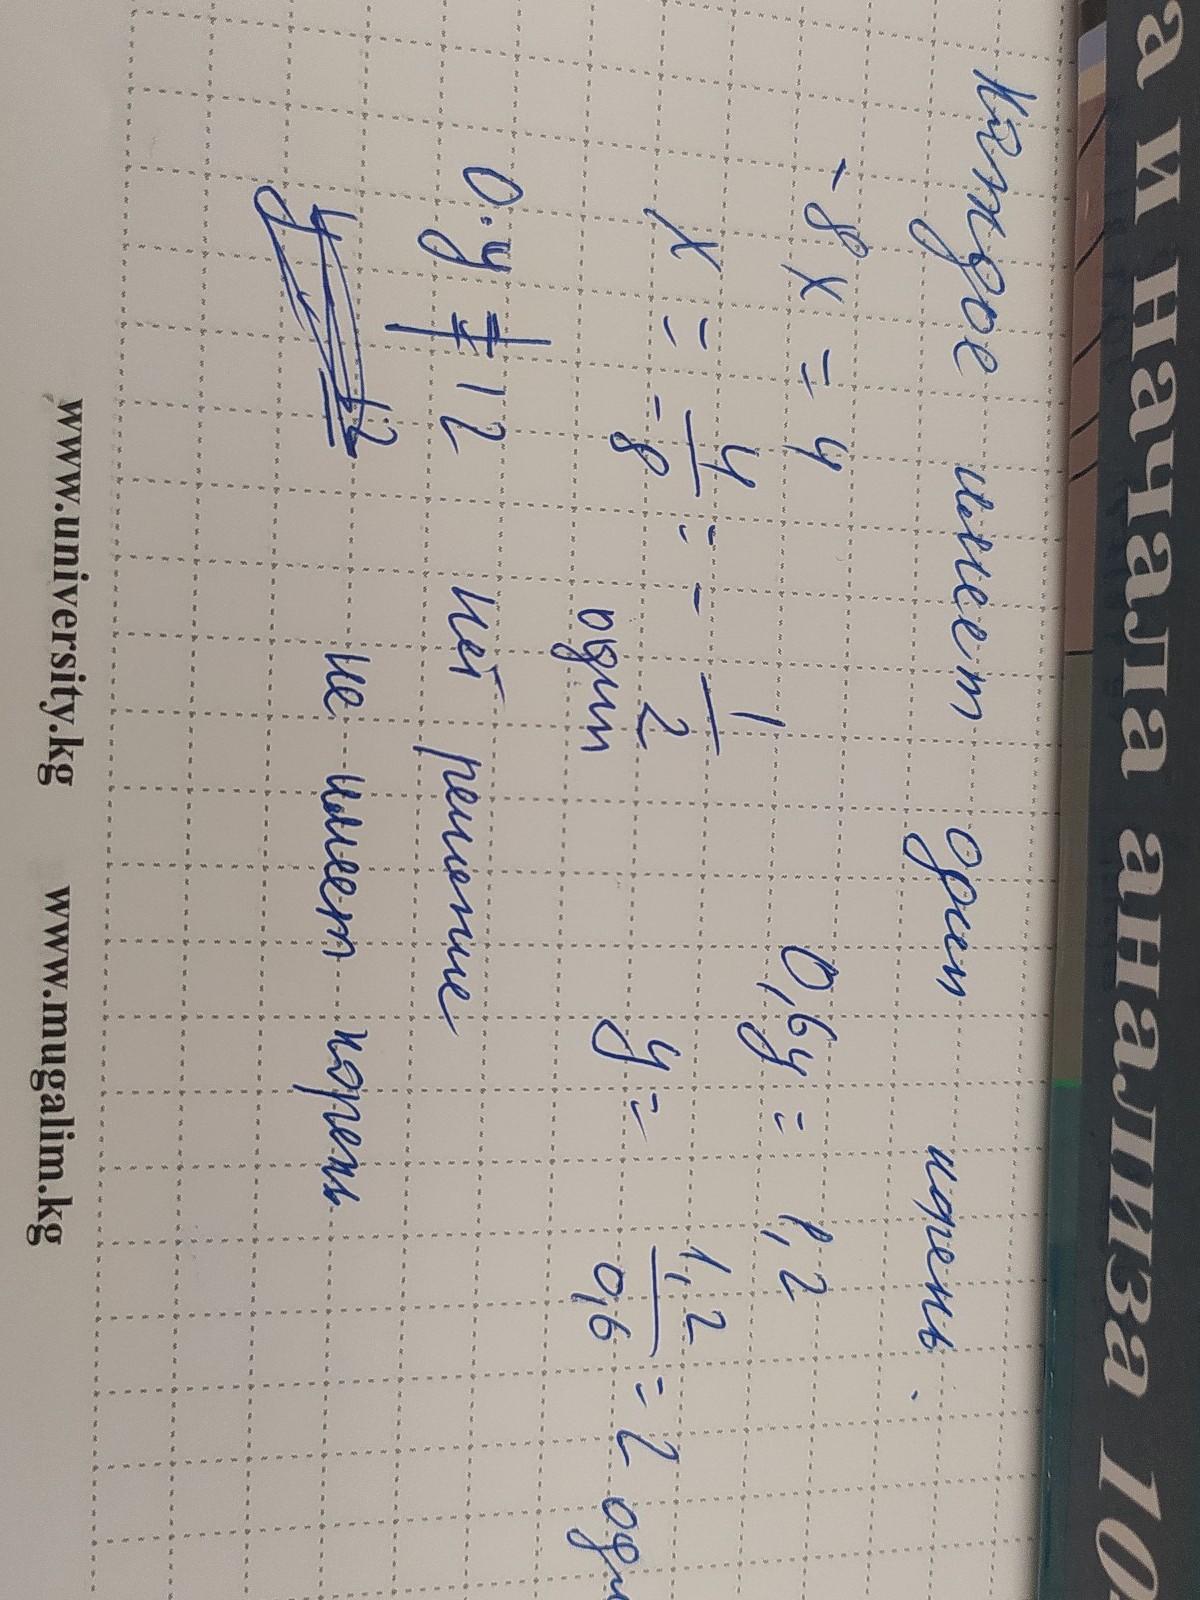 а и начала анализа 10
Каждое имеет один корень.
-8x = 4
0,6y = 1,2
x = 4/-8 = -1/2
y = 1,2/0,6 = 2
один
0·y ≠ 12
Нет решение
не имеет корень
www.university.kg www.mugalim.kg